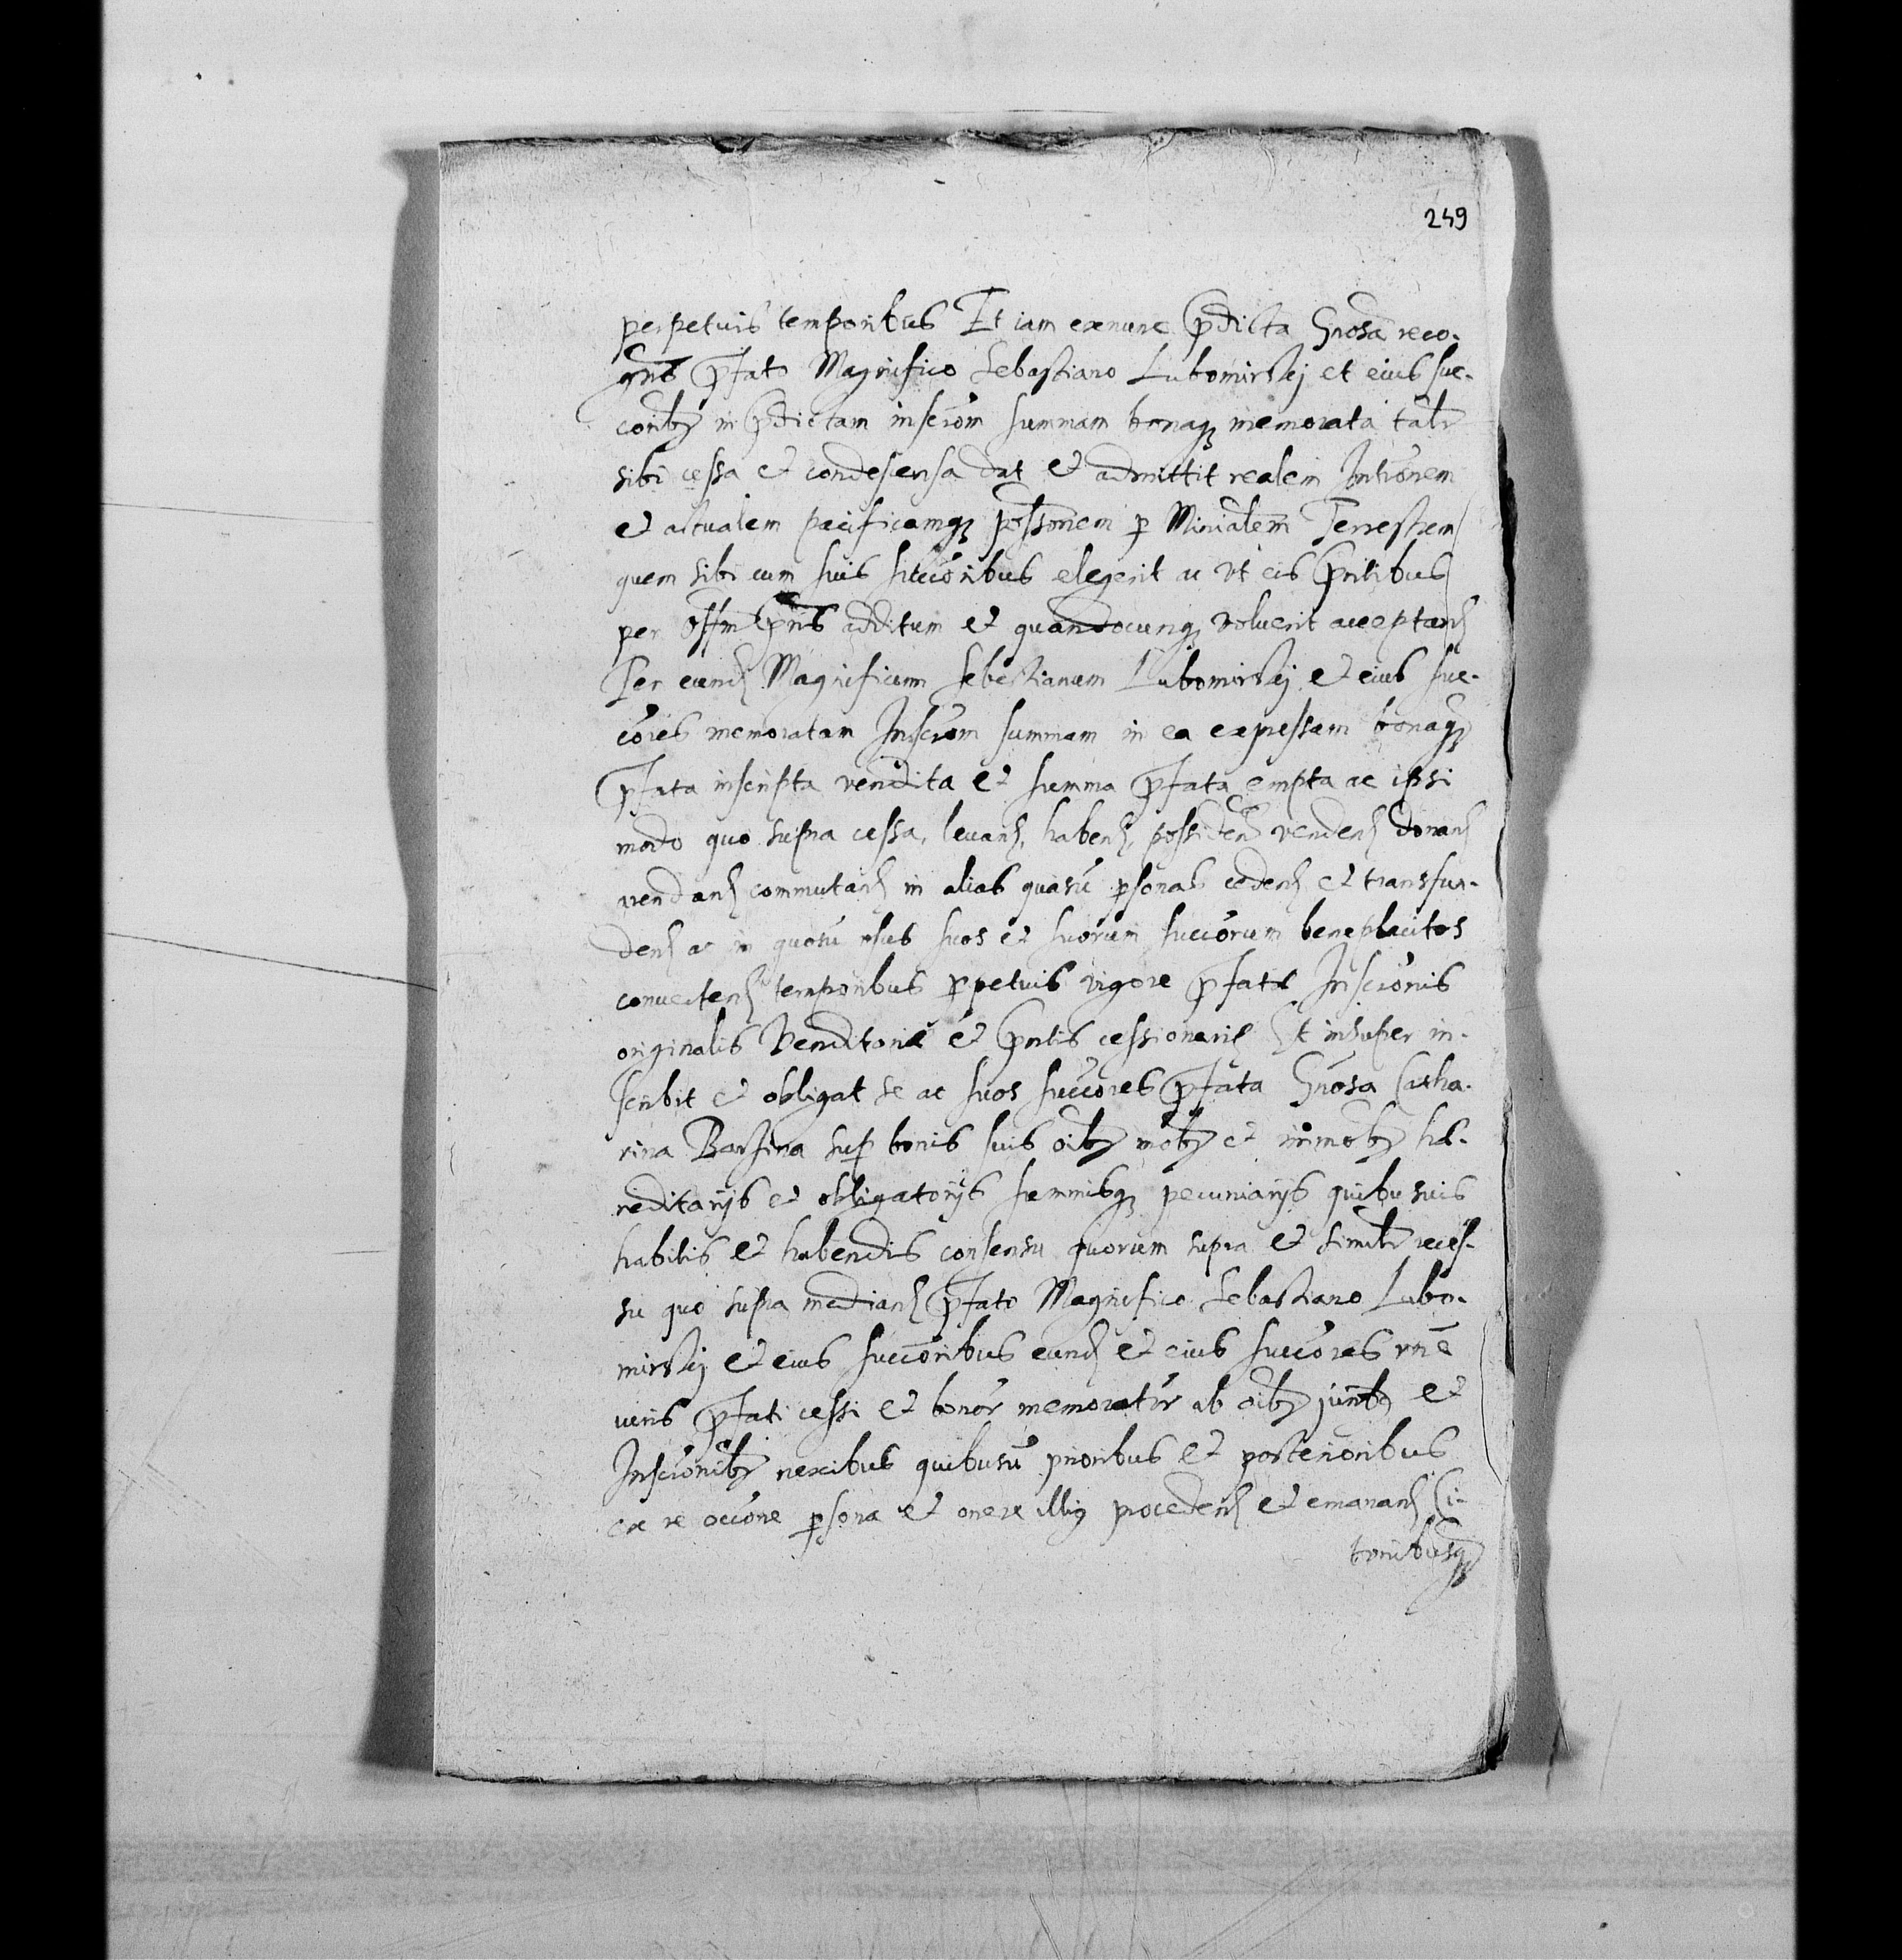 249
perpetuis temporibus Et iam exnunc pdicta Gnosa reco-
gnis pfato Magnifico Sebastiano Lubomirskij et eius suc-
coribz in pdictam inscrom summam bonaqz memorata talr
sibi cessa et condescensa dat et admittit realem Intronem
et actualem pacificamqz possonem p Minialem Terrestrem
quem sibi cum suis succoribus elegerit ac vt eis pntibus
per Offm pns additum et quandocunqz voluerit acceptand
Per eund Magnificum Sebastianum Lubomirskij et eius suc-
cores memoratam Inscrom summam in ea expressam bonaqz
pfata inscripta vendita et summa pfata empta ac ipsi
modo quo supra cessa, levand, habend, possidend vendend donand
vendand commutand in alias quasū psonas cedend et transfun-
dend ac in quosū vsus suos et suorum succorum beneplacitos
convertend temporibus ppetuis vigore pfatæ Inscronis
originalis Venditoriæ et pntis cessionariæ Et insuper in-
scribit et obligat se ac suos succores pfata Gnosa Catha-
rina Barzina sup bonis suis oibz mobz et immobz hæ-
reditarijs et obligatorijs summisqz pecuniarijs quibusuis
habitis et habendis consensu quorum supra et similr reces-
su quo supra mediand pfato Magnifico Sebastiano Lubo-
mirskij et eius succoribus eund et eius succores rne
iuris pfati cessi et bonor memorator ab oibz et
Inscronibz nexibus quibusū prioribus et posterioribus
ex re occone psona et onere illius procedend et emanand Ci-
tonibusqz